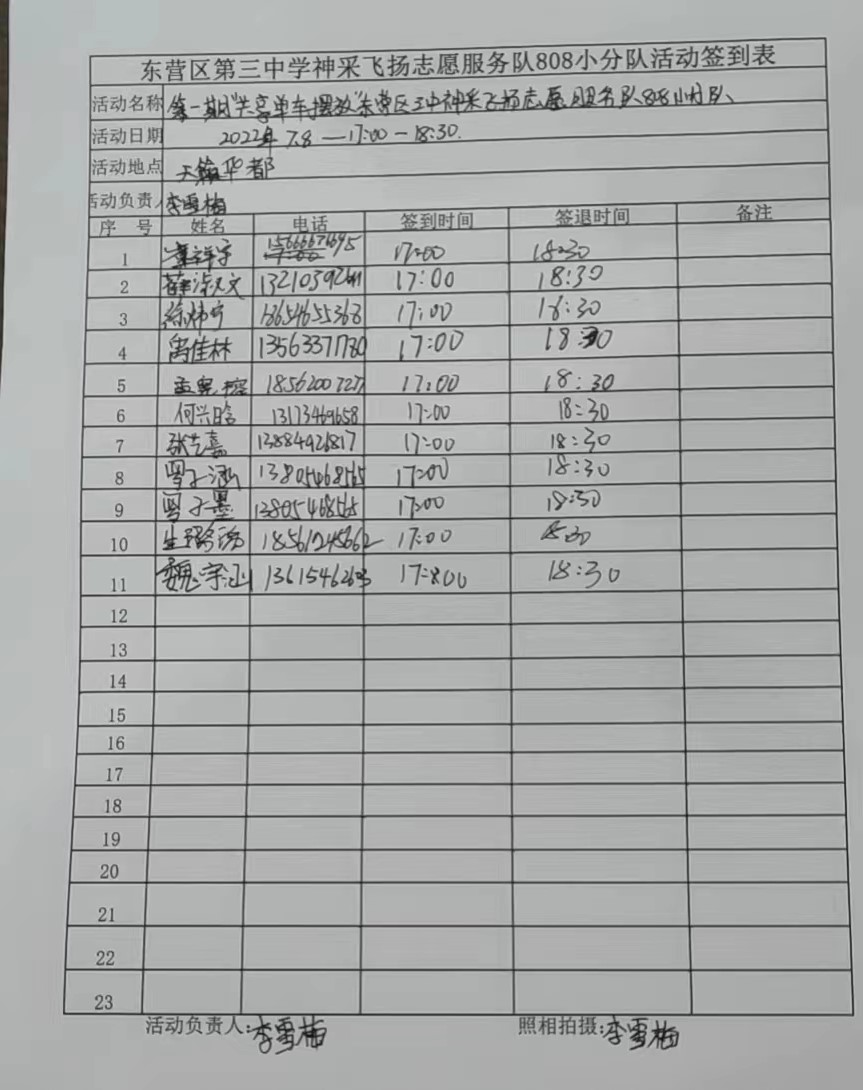 东营区第三中学神采飞扬志愿服务队808小分队活动签到表
活动名称 第一期"共享单车摆放"东营区三中神采飞扬志愿服务队808小分队
活动日期 2022年7.8—17:00-18:30.
活动地点 天翰华都
活动负责人 李雪梅
序号 姓名 电话 签到时间 签退时间 备注
1 17:00 18:30
2 17:00 18:30
3 18654655368 17:00 18:30
4 禹佳林 13563371780 17:00 18:30
5 17:00 18:30
6 何兴晗 13173469658 17:00 18:30
7 张艺嘉 13884926817 17:00 18:30
8 子涵 13805468565 17:00 18:30
9 子墨 13805468565 17:00 18:30
10 18561245662 17:00 18:30
11 魏宇涵 17:00 18:30
12
13
14
15
16
17
18
19
20
21
22
23
活动负责人:李雪梅 照相拍摄:李雪梅